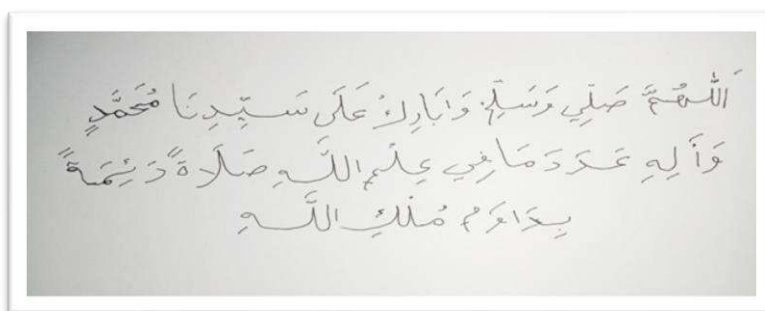 اَللّهُمَّ صَلِّي وَسَلِّمْ وَابَارِكْ عَلَى سَيِّدِنَا مُحَمَّدٍ
وَأَلِهِ عَدَدَ مَا فِي عِلْمِ اللَّهِ صَلَاةً دَئِمَةً
بِدَاوَمِ مُلْكِ اللَّهِ